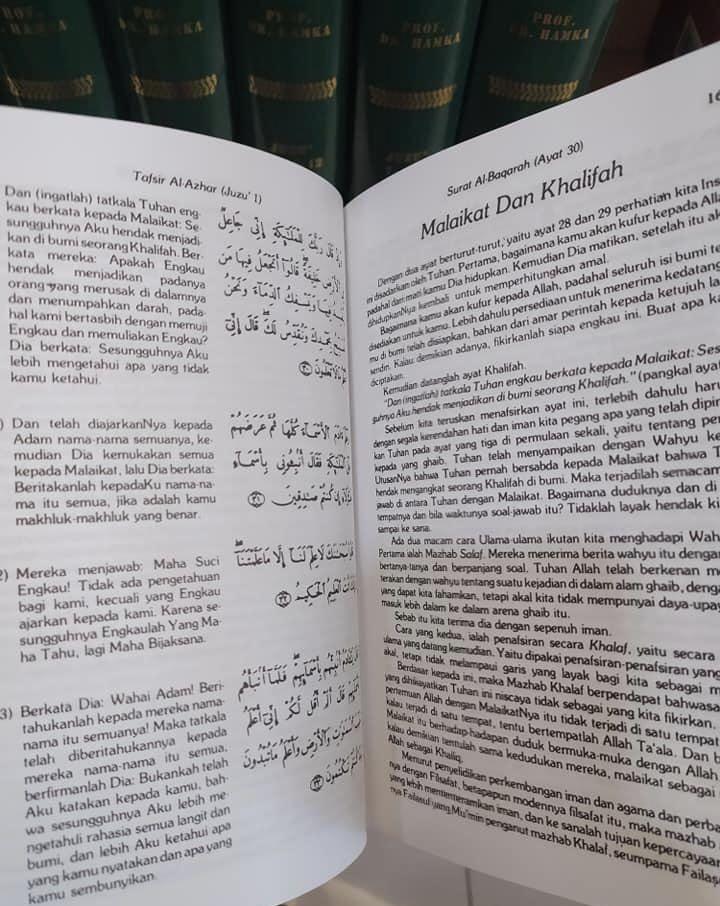 PROF.
DR. HAMKA
PROF.
DR. HAMKA
PROF.
DR. HAMKA
PROF.
DR. HAMKA
12
Tafsir Al-Azhar (Juzu' 1)
Dan (ingatlah) tatkala Tuhan eng-
kau berkata kepada Malaikat: Se-
sungguhnya Aku hendak menjadi-
kan di bumi seorang Khalifah. Ber-
kata mereka: Apakah Engkau
hendak menjadikan padanya
orang yang merusak di dalamnya
dan menumpahkan darah, pada-
hal kami bertasbih dengan memuji
Engkau dan memuliakan Engkau?
Dia berkata: Sesungguhnya Aku
lebih mengetahui apa yang tidak
kamu ketahui.
وَإِذْ قَالَ رَبُّكَ لِلْمَلٰٓئِكَةِ إِنِّي جَاعِلٌ
الْأَرْضِ خَلِيفَةً قَالُوٓا أَتَجْعَلُ فِيهَا مَنْ
يُفْسِدُ فِيهَا وَيَسْفِكُ الدِّمَآءَ وَنَحْنُ
نُسَبِّحُ بِحَمْدِكَ وَنُقَدِّسُ لَكَ قَالَ إِنِّيٓ
أَعْلَمُ مَا لَا تَعْلَمُونَ ٣٠
) Dan telah diajarkanNya kepada
Adam nama-nama semuanya, ke-
mudian Dia kemukakan semua
kepada Malaikat, lalu Dia berkata:
Beritakanlah kepadaKu nama-na-
ma itu semua, jika adalah kamu
makhluk-makhluk yang benar.
ءَادَمَ الْأَسْمَآءَ كُلَّهَا ثُمَّ عَرَضَهُمْ
الْمَلٰٓئِكَةِ فَقَالَ أَنْبِـُٔونِي بِأَسْمَآءِ
إِنْ كُنْتُمْ صٰدِقِينَ ٣١
2) Mereka menjawab: Maha Suci
Engkau! Tidak ada pengetahuan
bagi kami, kecuali yang Engkau
ajarkan kepada kami. Karena se-
sungguhnya Engkaulah Yang Ma-
ha Tahu, lagi Maha Bijaksana.
سُبْحٰنَكَ لَا عِلْمَ لَنَآ إِلَّا مَا عَلَّمْتَنَآ
أَنْتَ الْعَلِيمُ الْحَكِيمُ ٣٢
3) Berkata Dia: Wahai Adam! Beri-
tahukanlah kepada mereka nama-
nama itu semuanya! Maka tatkala
telah diberitahukannya kepada
mereka nama-nama itu semua,
berfirmanlah Dia: Bukankah telah
Aku katakan kepada kamu, bah-
wa sesungguhnya Aku lebih me-
ngetahui rahasia semua langit dan
bumi, dan lebih Aku ketahui apa
yang kamu nyatakan dan apa yang
kamu sembunyikan.
يٰٓـَٔادَمُ أَنْبِئْهُمْ بِأَسْمَآئِهِمْ فَلَمَّآ أَنْبَأَهُمْ
قَالَ أَلَمْ أَقُلْ لَكُمْ إِنِّيٓ أَعْلَمُ
السَّمٰوٰتِ وَالْأَرْضِ وَأَعْلَمُ مَا تُبْدُونَ
كُنْتُمْ تَكْتُمُونَ ٣٣
Surat Al-Baqarah (Ayat 30)
Malaikat Dan Khalifah
Dengan dua ayat berturut-turut, yaitu ayat 28 dan 29 perhatian kita
ini disadarkan oleh Tuhan. Pertama, bagaimana kamu akan kufur kepada
padahal dari mati kamu Dia hidupkan. Kemudian Dia matikan, setelah itu
dihidupkanNya kembali untuk memperhitungkan amal.
Bagaimana kamu akan kufur kepada Allah, padahal seluruh isi bumi
disediakan untuk kamu. Lebih dahulu persediaan untuk menerima
mu di bumi telah disiapkan, bahkan dari amar perintah kepada ketujuh
sendiri. Kalau demikian adanya, fikirkanlah siapa engkau ini. Buat apa
diciptakan.
Kemudian datanglah ayat Khalifah.
"Dan (ingatlah) tatkala Tuhan engkau berkata kepada Malaikat:
guhnya Aku hendak menjadikan di bumi seorang Khalifah." (pangkal
Sebelum kita teruskan menafsirkan ayat ini, terlebih dahulu
dengan segala kerendahan hati dan iman kita pegang apa yang telah
kan Tuhan pada ayat yang tiga di permulaan sekali, yaitu tentang
kepada yang ghaib. Tuhan telah menyampaikan dengan Wahyu
UtusanNya bahwa Tuhan pernah bersabda kepada Malaikat bahwa
hendak mengangkat seorang Khalifah di bumi. Maka terjadilah semacam
jawab di antara Tuhan dengan Malaikat. Bagaimana duduknya dan di
tempatnya dan bila waktunya soal-jawab itu? Tidaklah layak hendak
sampai ke sana.
Ada dua macam cara Ulama-ulama ikutan kita menghadapi
Pertama ialah Mazhab Salaf. Mereka menerima berita wahyu itu dengan
bertanya-tanya dan berpanjang soal. Tuhan Allah telah berkenan
terakan dengan wahyu tentang suatu kejadian di dalam alam ghaib,
yang dapat kita fahamkan, tetapi akal kita tidak mempunyai
masuk lebih dalam ke dalam arena ghaib itu.
Sebab itu kita terima dia dengan sepenuh iman.
Cara yang kedua, ialah penafsiran secara Khalaf, yaitu secara
ulama yang datang kemudian. Yaitu dipakai penafsiran-penafsiran
akal, tetapi tidak melampaui garis yang layak bagi kita sebagai
Berdasar kepada ini, maka Mazhab Khalaf berpendapat
yang dihikayatkan Tuhan ini niscaya tidak sebagai yang kita fikirkan.
pertemuan Allah dengan MalaikatNya itu tidak terjadi di satu
kalau terjadi di satu tempat, tentu bertempatlah Allah Ta'ala. Dan
Malaikat itu berhadap-hadapan duduk bermuka-muka dengan
kalau demikian tentulah sama kedudukan mereka, malaikat sebagai
Allah sebagai Khaliq.
Menurut penyelidikan perkembangan iman dan agama dan
nya dengan Filsafat, betapapun modennya filsafat itu, maka mazhab
yang lebih mententeramkan iman, dan ke sanalah tujuan
nya Failasuf yang Mu'min penganut mazhab Khalaf, seumpama